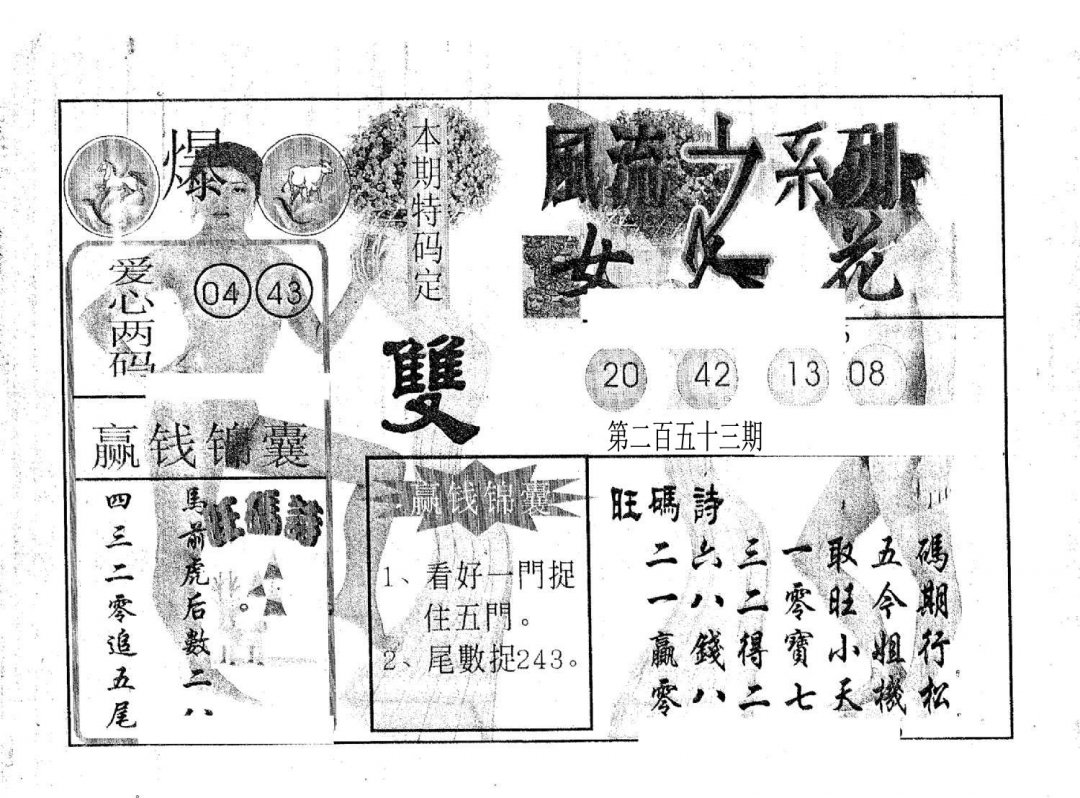 爆
爱心两码
04 43
赢钱锦囊
旺碼詩
馬前虎后數二八
四三二零追五尾
本期特码定
雙
風流之系列
女人花
20 42 13 08
第二百五十三期
赢钱锦囊
1、看好一門捉
住五門。
2、尾數捉243。
旺碼詩
二六三一取五碼
一八二零旺今期
贏錢得寶小姐行
零八二七天機松